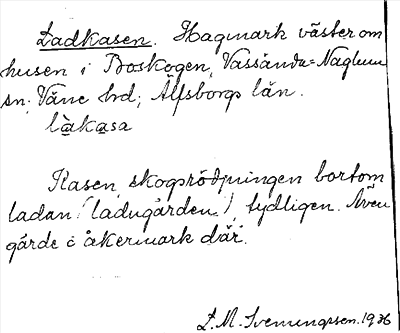 Ladkasen. Hagmark väster om
husen i Boskogen, Vassända-Naglum
sn, Väne hd, Älfsborgs län.
làkasa
Kasen, skogsrödjningen bortom
ladan (ladugården), tydligen. Även
gärde o åkermark där.
L. M. Svenungsson. 1936